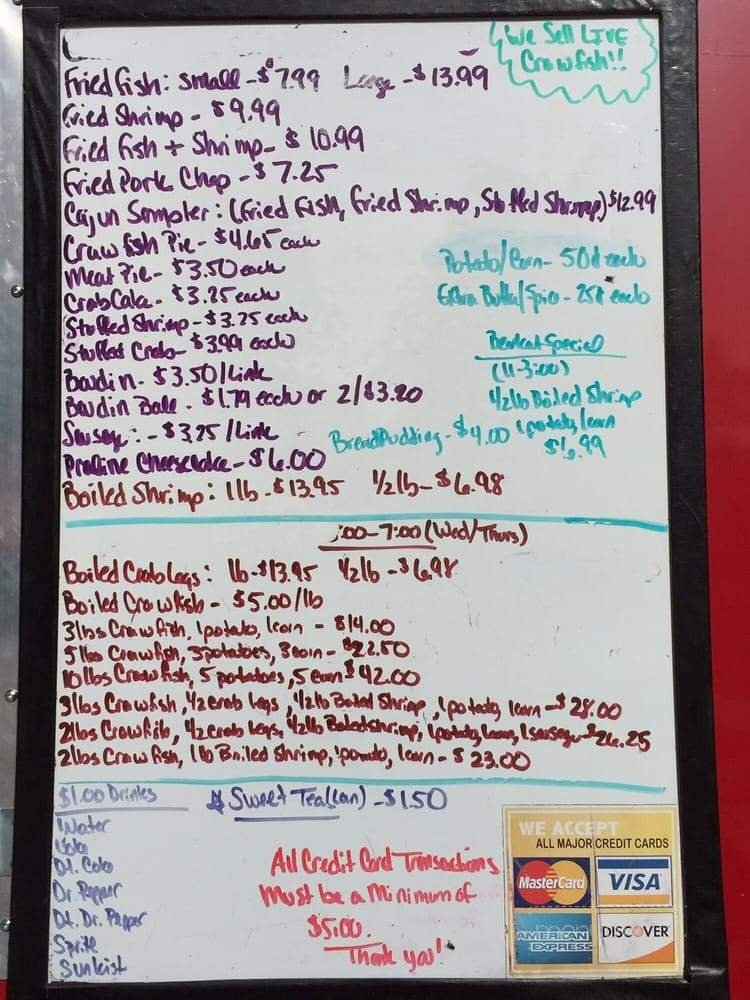 We Sell LIVE
Crawfish!!
Fried Fish: small - $7.99 Large - $13.99
Fried Shrimp - $9.99
Fried Fish + Shrimp - $10.99
Fried Pork Chop - $7.25
Cajun Sampler: (Fried Fish, Fried Shrimp, Stuffed Shrimp) $12.99
Crawfish Pie - $4.65 each
Meat Pie - $3.50 each
Crab Cake - $3.25 each
Stuffed Shrimp - $3.25 each
Stuffed Crab - $3.99 each
Boudin - $3.50/Link
Boudin Ball - $1.79 each or 2/$3.20
Sausage: - $3.25/Link
Praline Cheesecake - $6.00
Boiled Shrimp: 1lb - $13.95 1/2lb - $6.98
Potato/Corn - 50¢ each
Extra Butter/Spice - 25¢ each
Bearkat Special
(11-3:00)
1/2lb Boiled Shrimp
1potato, 1corn
$6.99
Bread Pudding - $4.00
:00-7:00 (Wed/Thurs)
Boiled Crab Legs: lb - $13.95 1/2lb - $6.98
Boiled Crawfish - $5.00/lb
3lbs Crawfish, 1potato, 1corn - $14.00
5lbs Crawfish, 3potatoes, 3corn - $22.50
10lbs Crawfish, 5 potatoes, 5 corn $42.00
3lbs Crawfish, 1/2 crab legs, 1/2lb Boiled Shrimp, 1potato, 1corn - $28.00
2lbs Crawfish, 1/2 crab legs, 1/2lb Boiled shrimp, 1potato, 1corn, 1sausage - $26.25
2lbs Crawfish, 1lb Boiled Shrimp, 1potato, 1corn - $23.00
$1.00 Drinks
Water
Coke
Dt. Coke
Dr. Pepper
Dt. Dr. Pepper
Sprite
Sunkist
Sweet Tea (can) - $1.50
All Credit Card Transactions
Must be a Minimum of
$5.00.
Thank you!
WE ACCEPT
ALL MAJOR CREDIT CARDS
MasterCard
VISA
AMERICAN EXPRESS
DISCOVER